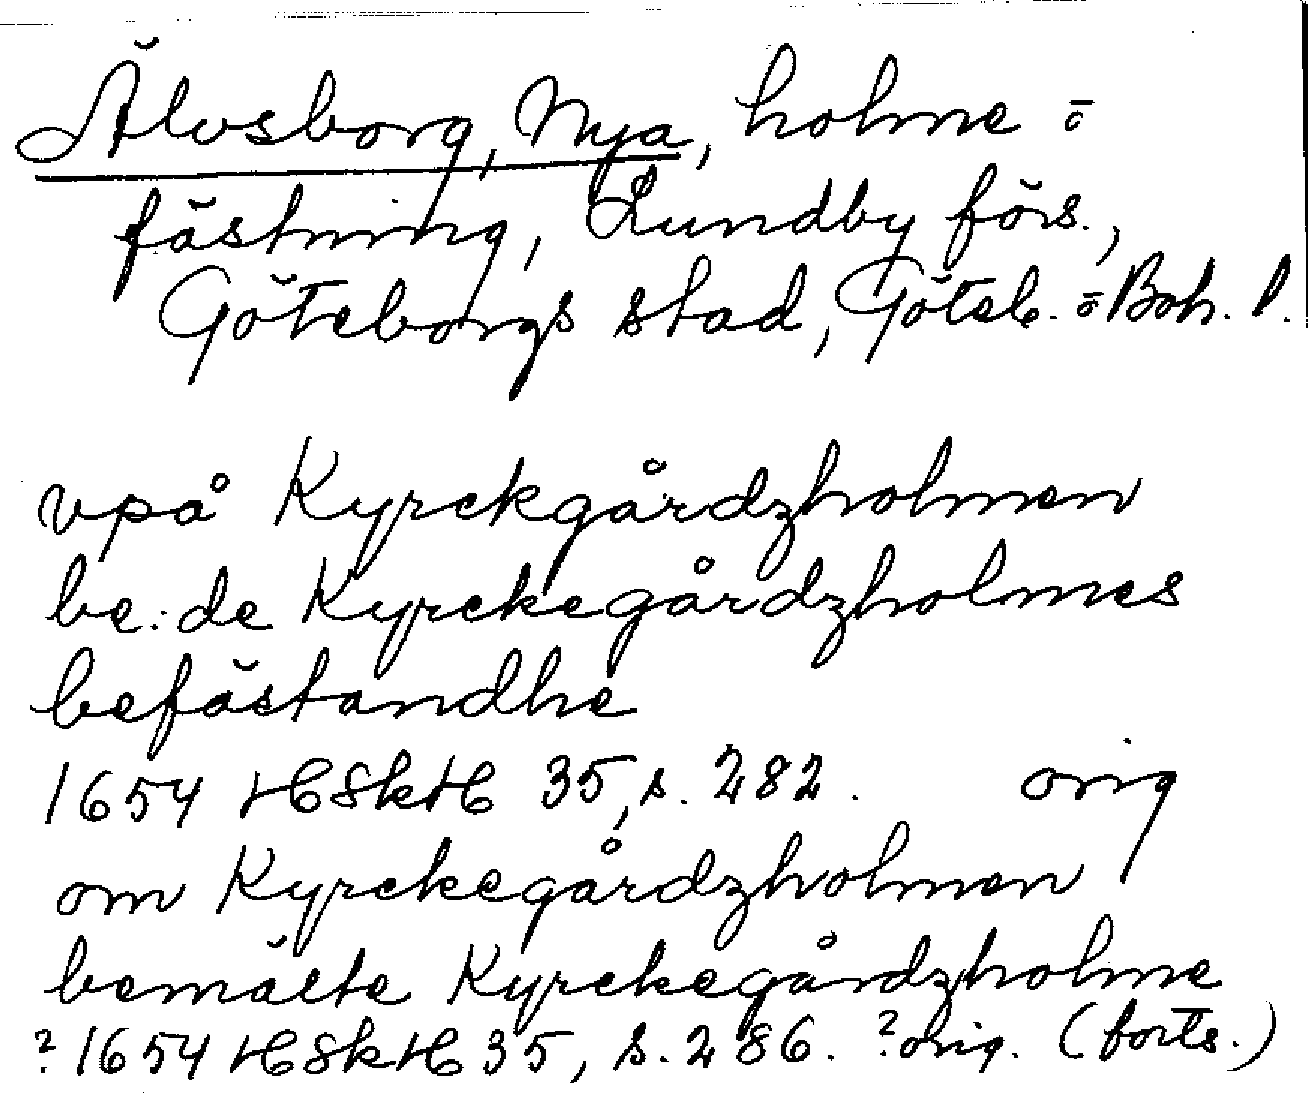 Älvsborg, Nya, holme =
fästning, Lundby förs.,
Göteborgs stad, Göteb. = Boh. l.
vpå Kyrckgårdzholmen
be: de Kyrckegårdzholmes
befästandhe
1654 HSkH 35, s. 282. orig
om Kyrckegårdzholmen
bemälte Kyrckegårdzholme
? 1654 HSkH 35, s. 286. ? orig. (forts.)